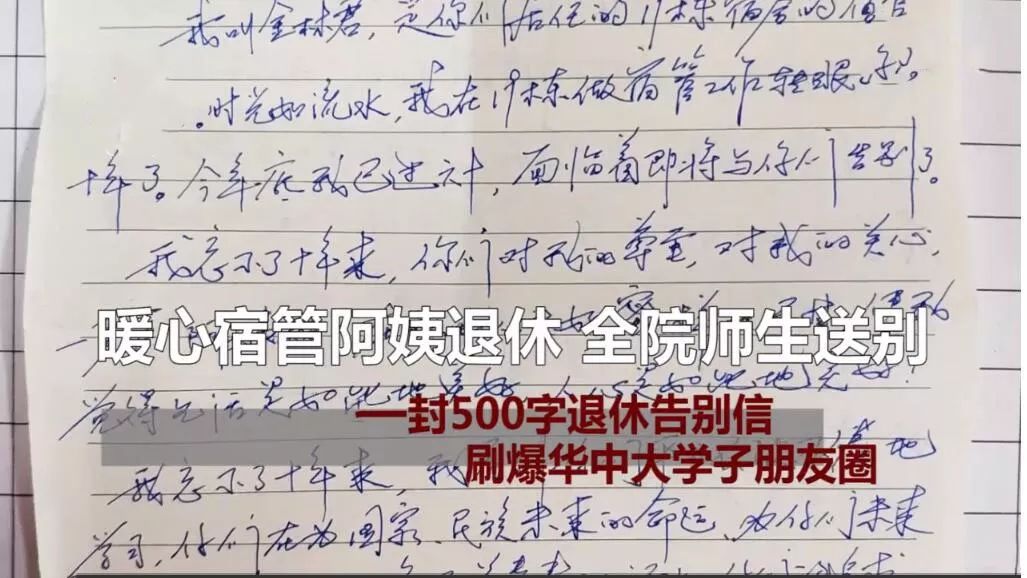 我叫金林君，是你们居住的19栋宿舍的值
时光如流水，我在19栋做宿管工作转眼
十年了。今年底我已过六十，面临着即将与你们告别了。
我忘不了十年来，你们对我的尊重，对我的关心，
暖心宿管阿姨退休 全院师生送别
觉得生活是如此地美好，
一封500字退休告别信
刷爆华中大学子朋友圈
我忘不了十年来，我 地
学习，你们在为国家、民族未来的命运，为你们未来